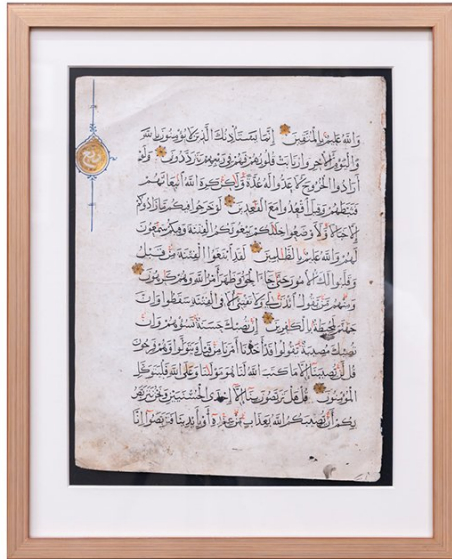 والله عليم بالمتقين إنما يستأذنك الذين لا يؤمنون بالله
واليوم الآخر وارتابت قلوبهم فهم في ريبهم يترددون ولو
أرادوا الخروج لأعدوا له عدة ولكن كره الله انبعاثهم
فثبطهم وقيل اقعدوا مع القعدين لو خرجوا فيكم ما زادوكم
إلا خبالا ولأوضعوا خللكم يبغونكم الفتنة وفيكم سمعون
لهم والله عليم بالظلمين لقد ابتغوا الفتنة من قبل
وقلبوا لك الأمور حتى جاء الحق وظهر أمر الله وهم كرهون
ومنهم من يقول ائذن لي ولا تفتني ألا في الفتنة سقطوا وإن
جهنم لمحيطة بالكفرين إن تصبك حسنة تسؤهم وإن
تصبك مصيبة يقولوا قد أخذنا أمرنا من قبل ويتولوا وهم فرحون
قل لن يصيبنا إلا ما كتب الله لنا هو مولنا وعلى الله فليتوكل
المؤمنون قل هل تربصون بنا إلا إحدى الحسنيين ونحن نتربص
بكم أن يصيبكم الله بعذاب من عنده أو بأيدينا فتربصوا إنا